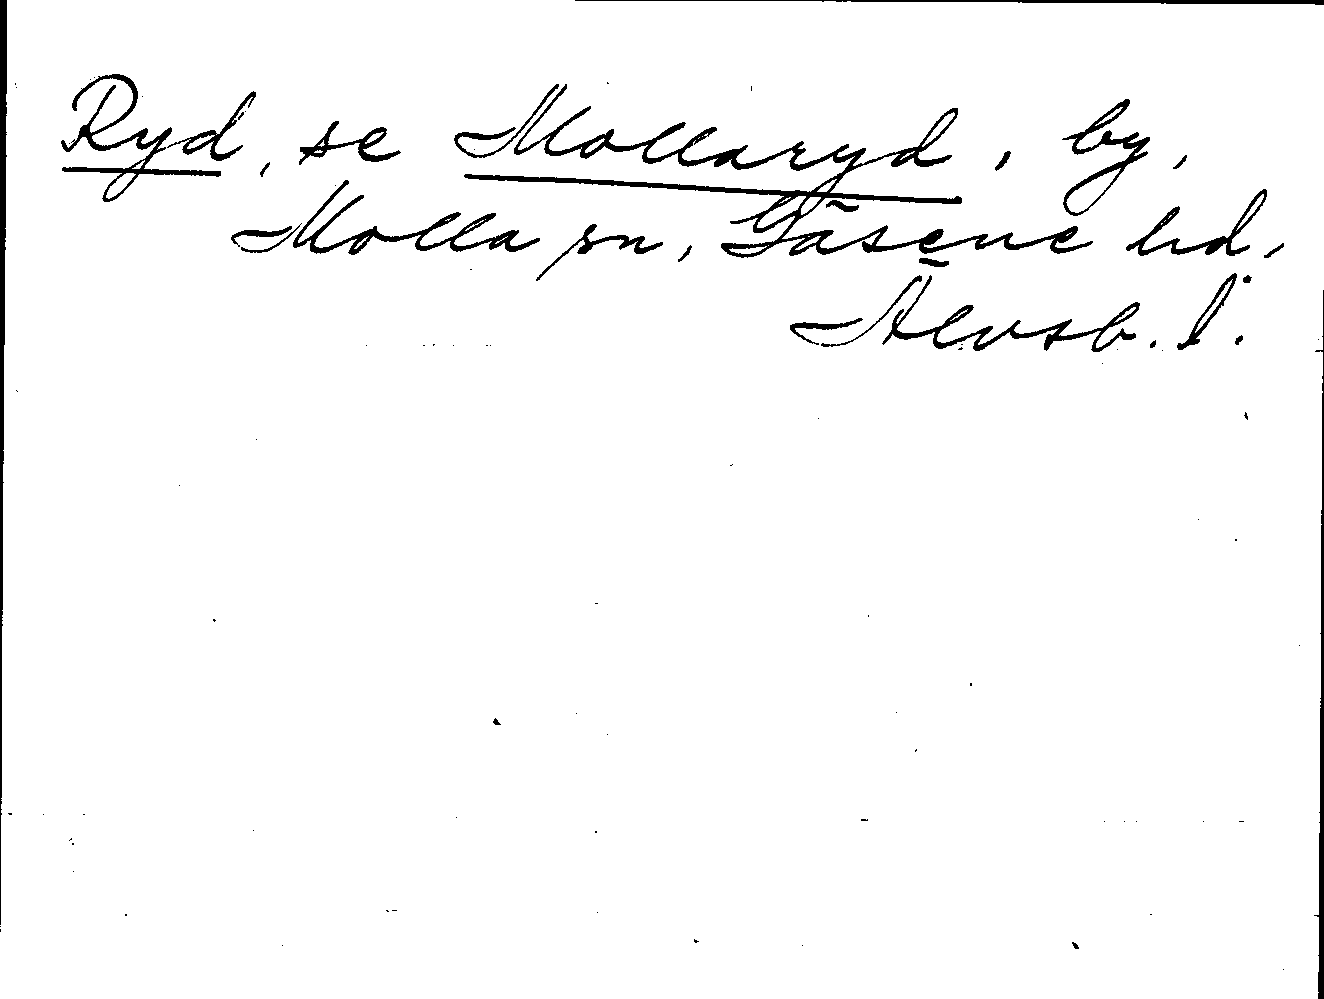 Ryd, se Mollaryd, by,
Molla sn, Gäsene hd,
Älvsb. l.